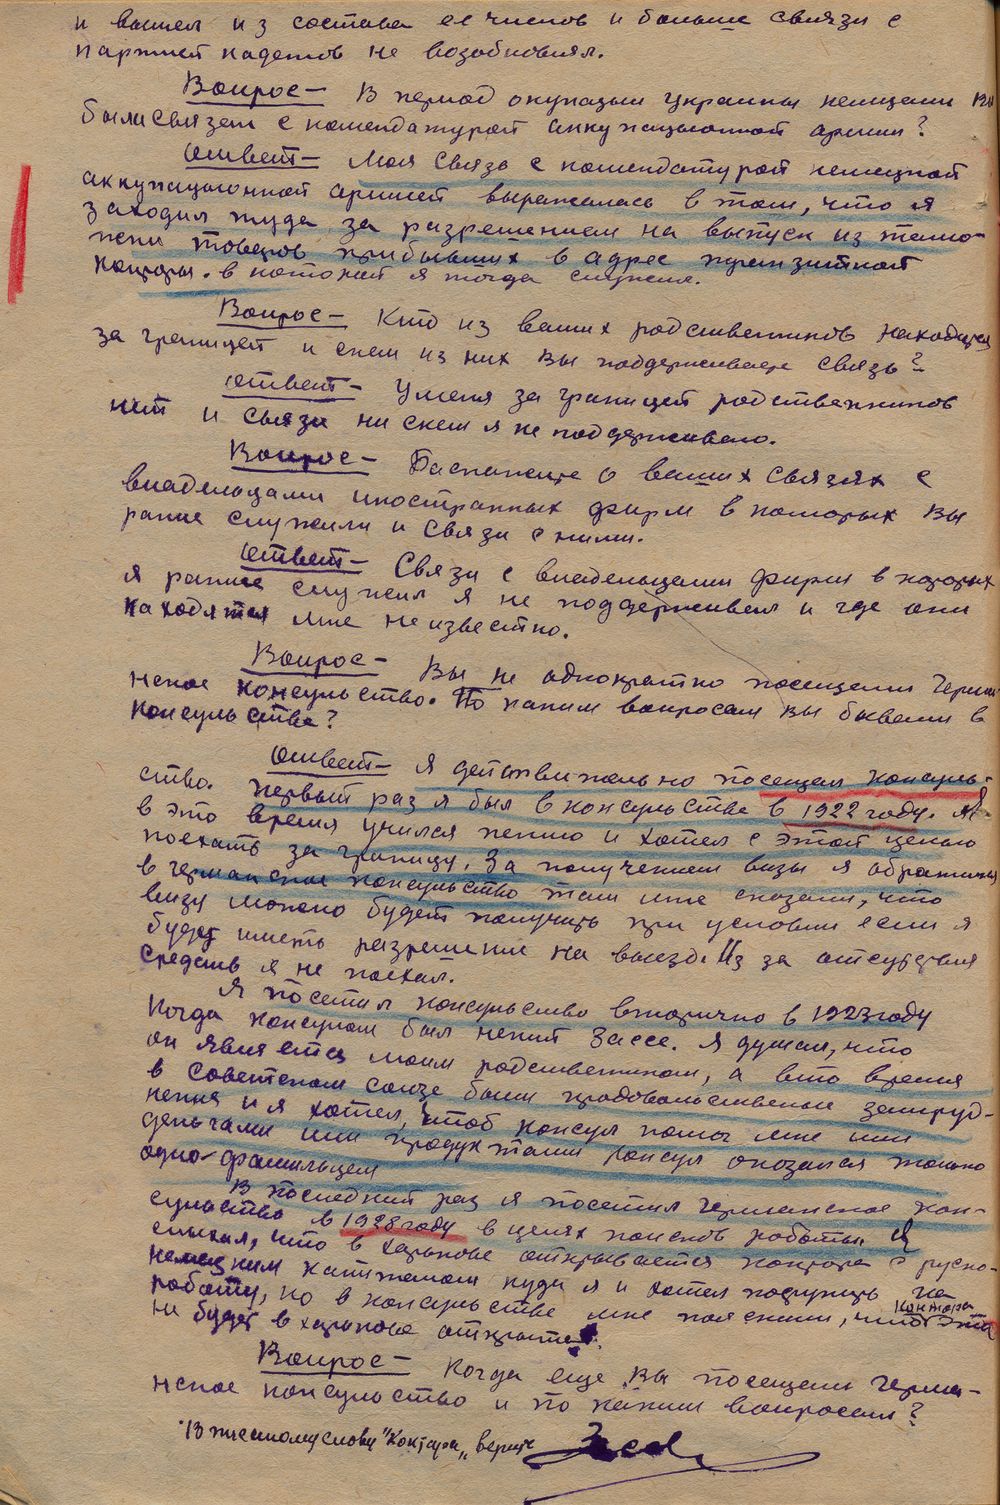 и вышел из состава ее членов и больше связи с
партией кадетов не возобновлял.
Вопрос – В период окупации Украины немцами Вы
были связан с комендатурой оккупационной армии?
Ответ – Моя связь с комендатурой немецкой
аккупационной армией выражалась в том, что я
заходил туда за разрешением на выпуск из тамо-
жени товаров прибывших в адрес транзитной
конторы, в которой я тогда служил.
Вопрос – Кто из ваших родственников находится
за границей и скем из них вы поддерживаете связь?
Ответ – У меня за границей родственников
нет и связи ни скем я не поддерживаю.
Вопрос – Раскажите о ваших связях с
владельцами иностранных фирм в которых вы
ранше служили и связи с ними.
Ответ – Связи с владельцами фирм в которых
я ранше служил я не поддерживал и где они
находятся мне неизвестно.
Вопрос – Вы не однократно посещали Герма-
нское консульство. По каким вопросам вы бывали в
консульстве?
Ответ – Я действительно посещал консуль-
ство. Первый раз я был в консульстве в 1922 году. Я
в это время учился пению и хотел с этой целью
поехать за границу. За получением визы я обратился
в германское консульство там мне сказали, что
визу можно будет получить при условии если я
буду иметь разрешение на выезд. Из за отсутствия
средств я не поехал.
Я посетил консульство вторично в 1923 году
Когда консулом был некий Зассе. Я думал, что
он является моим родственником, а вто время
в Советском союзе были продовольственые затруд-
нения и я хотел, чтоб консул помог мне или
деньгами или продуктами консул оказался только
одно-фамильцем
В последний раз я посетил Германское кон-
сульство в 1928 году в целях поисков работы. Я
слыхал, что в Харькове открывается контора с руско-
немецким капиталом куда я и хотел поступить на
работу, но в консульстве мне пояснили, что эта
контора
не будет в Харькове открыта.
Вопрос – Когда еще вы посещали Герма-
нское консульство и по каким вопросам?
Вписаному слову "Контора" верить